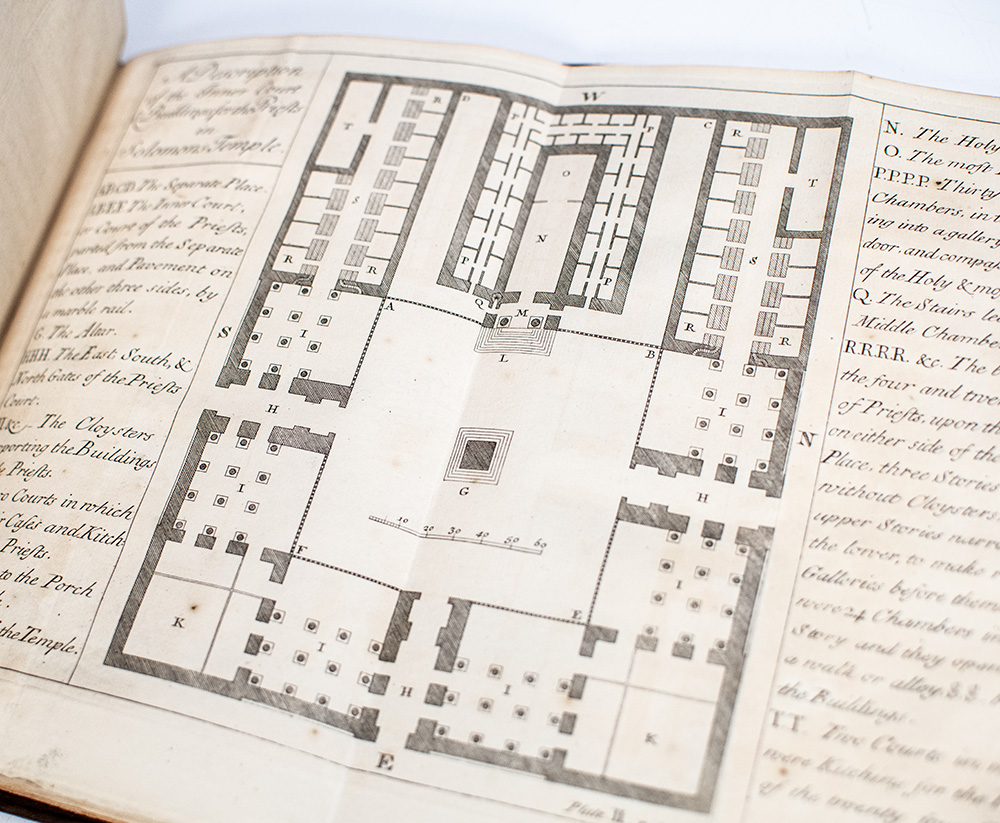 A Description
of the Inner Court
& Buildings for the Priests
in
Solomons Temple.
ABCD. The Separate Place.
The Inner Court,
or Court of the Priests,
parted from the Separate
Place, and Pavement on
the other three sides, by
a marble rail.
G. The Altar.
HHH. The East, South, &
North Gates of the Priests
Court.
&c. The Cloysters
supporting the Buildings
Priests.
Courts in which
and Kitch
Priests.
to the Porch
the Temple.
W
T
R
D
P
P
C
R
T
S
O
N
S
R
R
P
P
R
R
Q
M
A
B
L
I
I
S
N
H
H
G
I
I
10 20 30 40 50 60
F
E
K
I
I
K
H
E
Plate II
N. The Holy
O. The most
P.P.P.P. Thirty
Chambers, in
ing into a gallery
door, and compass
of the Holy & mos
Q. The Stairs le
Middle Chambe
RRRR. &c. The b
the four and twen
of Priests, upon th
on either side of the
Place, three Stories
without Cloysters
upper Stories narro
the lower, to make
Galleries before them
were 24 Chambers in
Story and they open
a walk or alley. SS.
the Buildings.
TT. Two Courts
were Kitchins for the
of the twenty